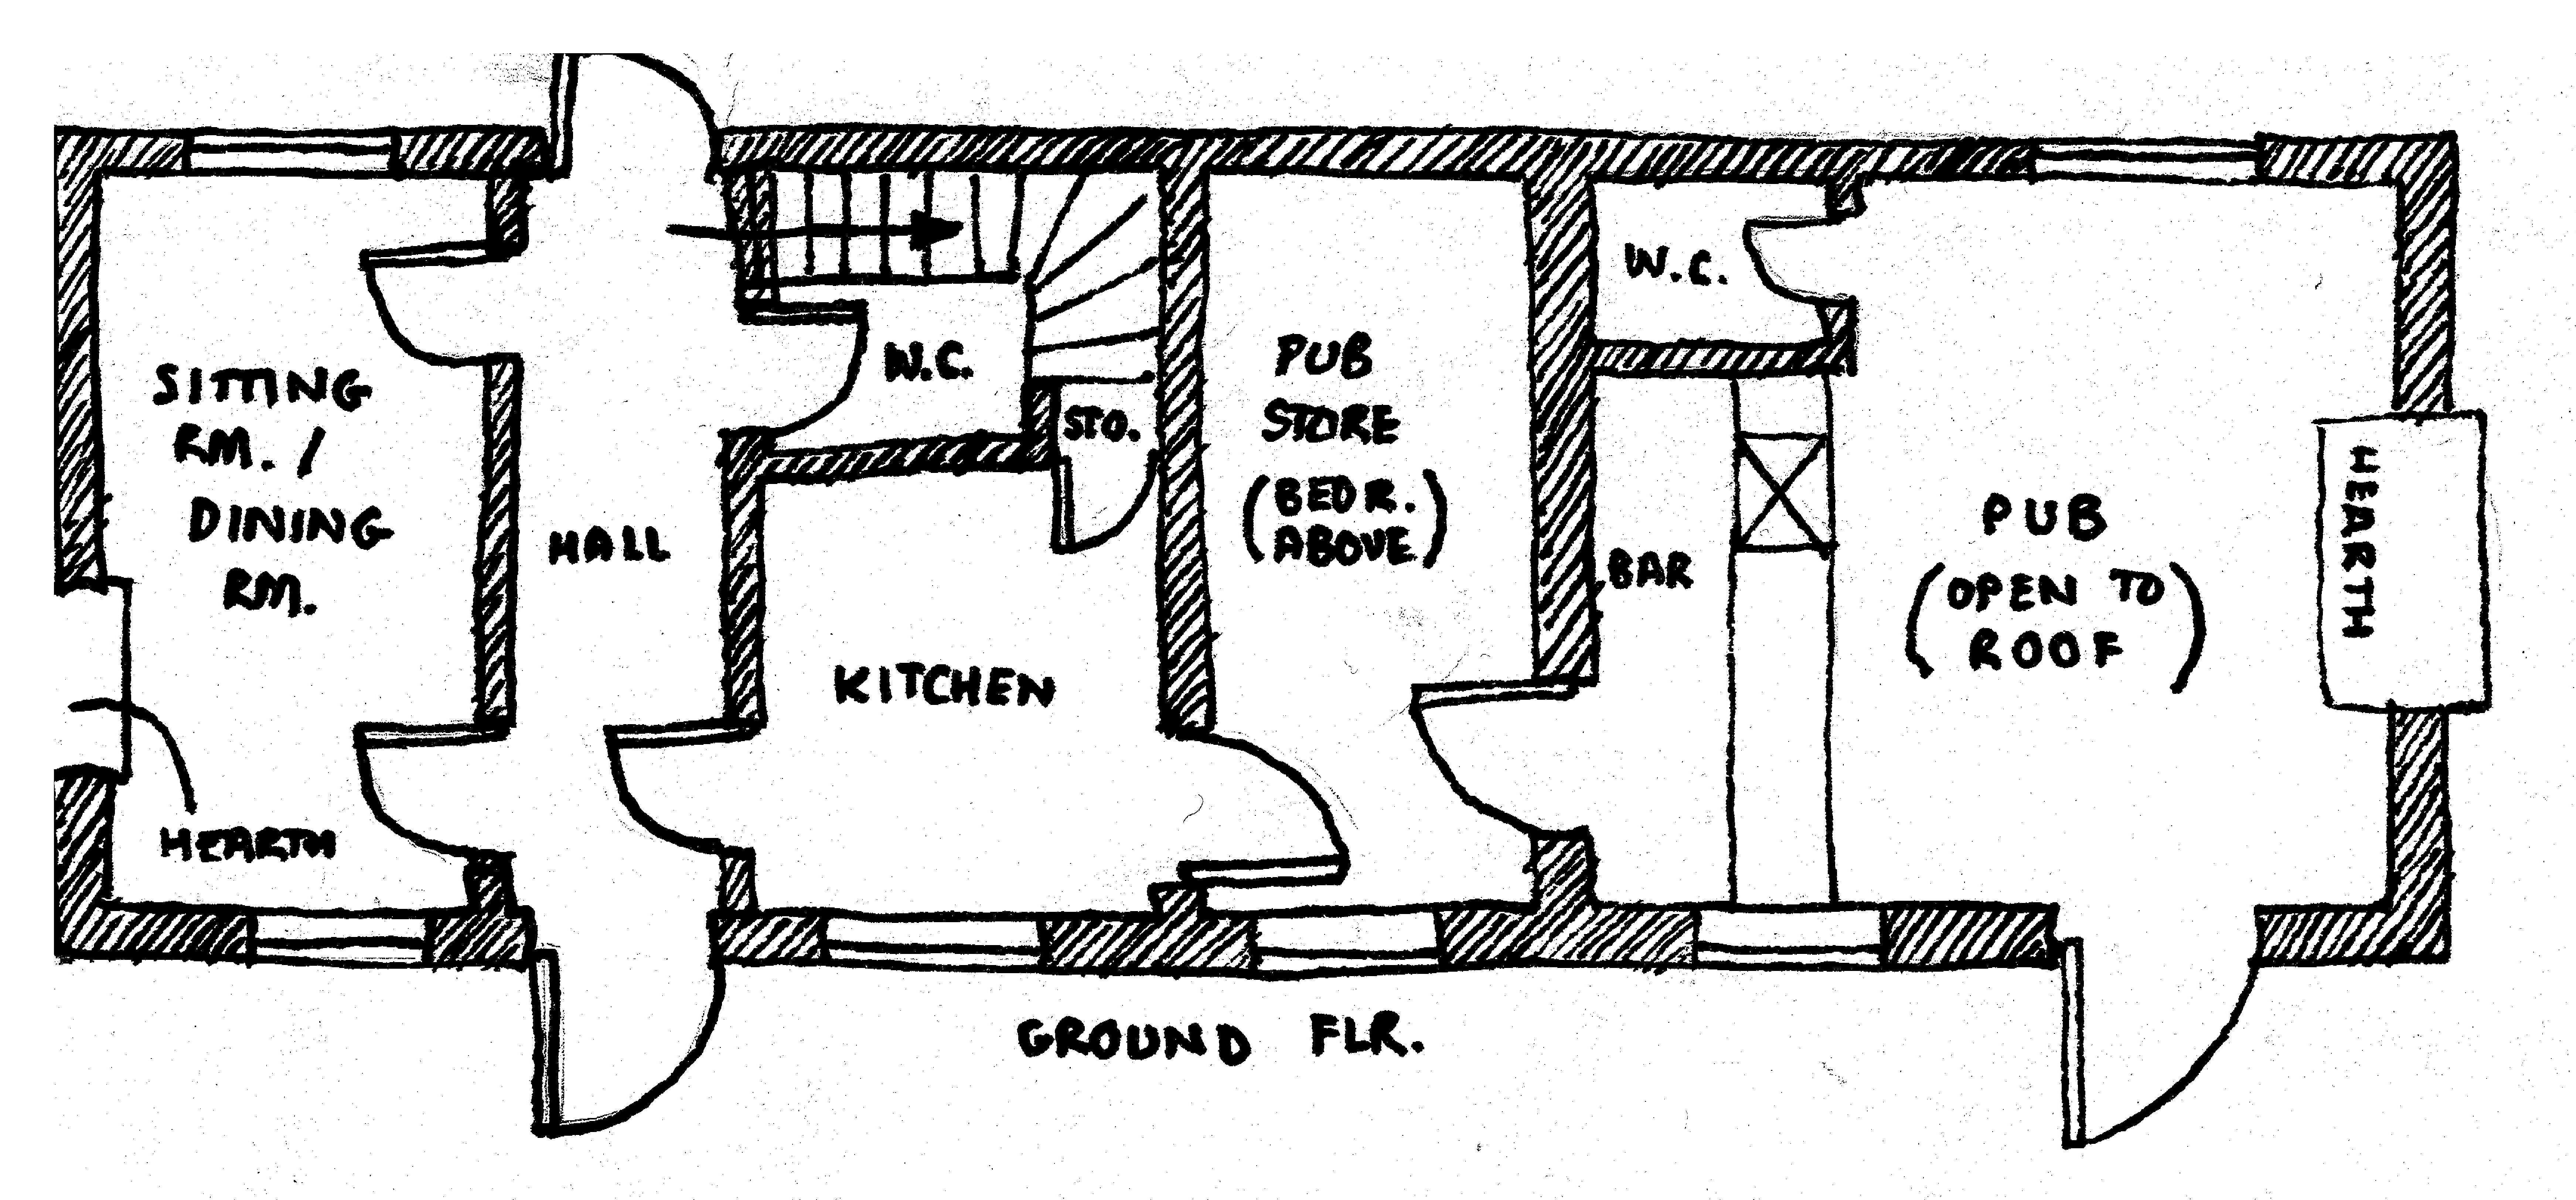 SITTING
RM. /
DINING
RM.
HEARTH
HALL
W.C.
STO.
KITCHEN
PUB
STORE
(BEDR.
ABOVE)
W.C.
BAR
PUB
(OPEN TO
ROOF)
HEARTH
GROUND FLR.